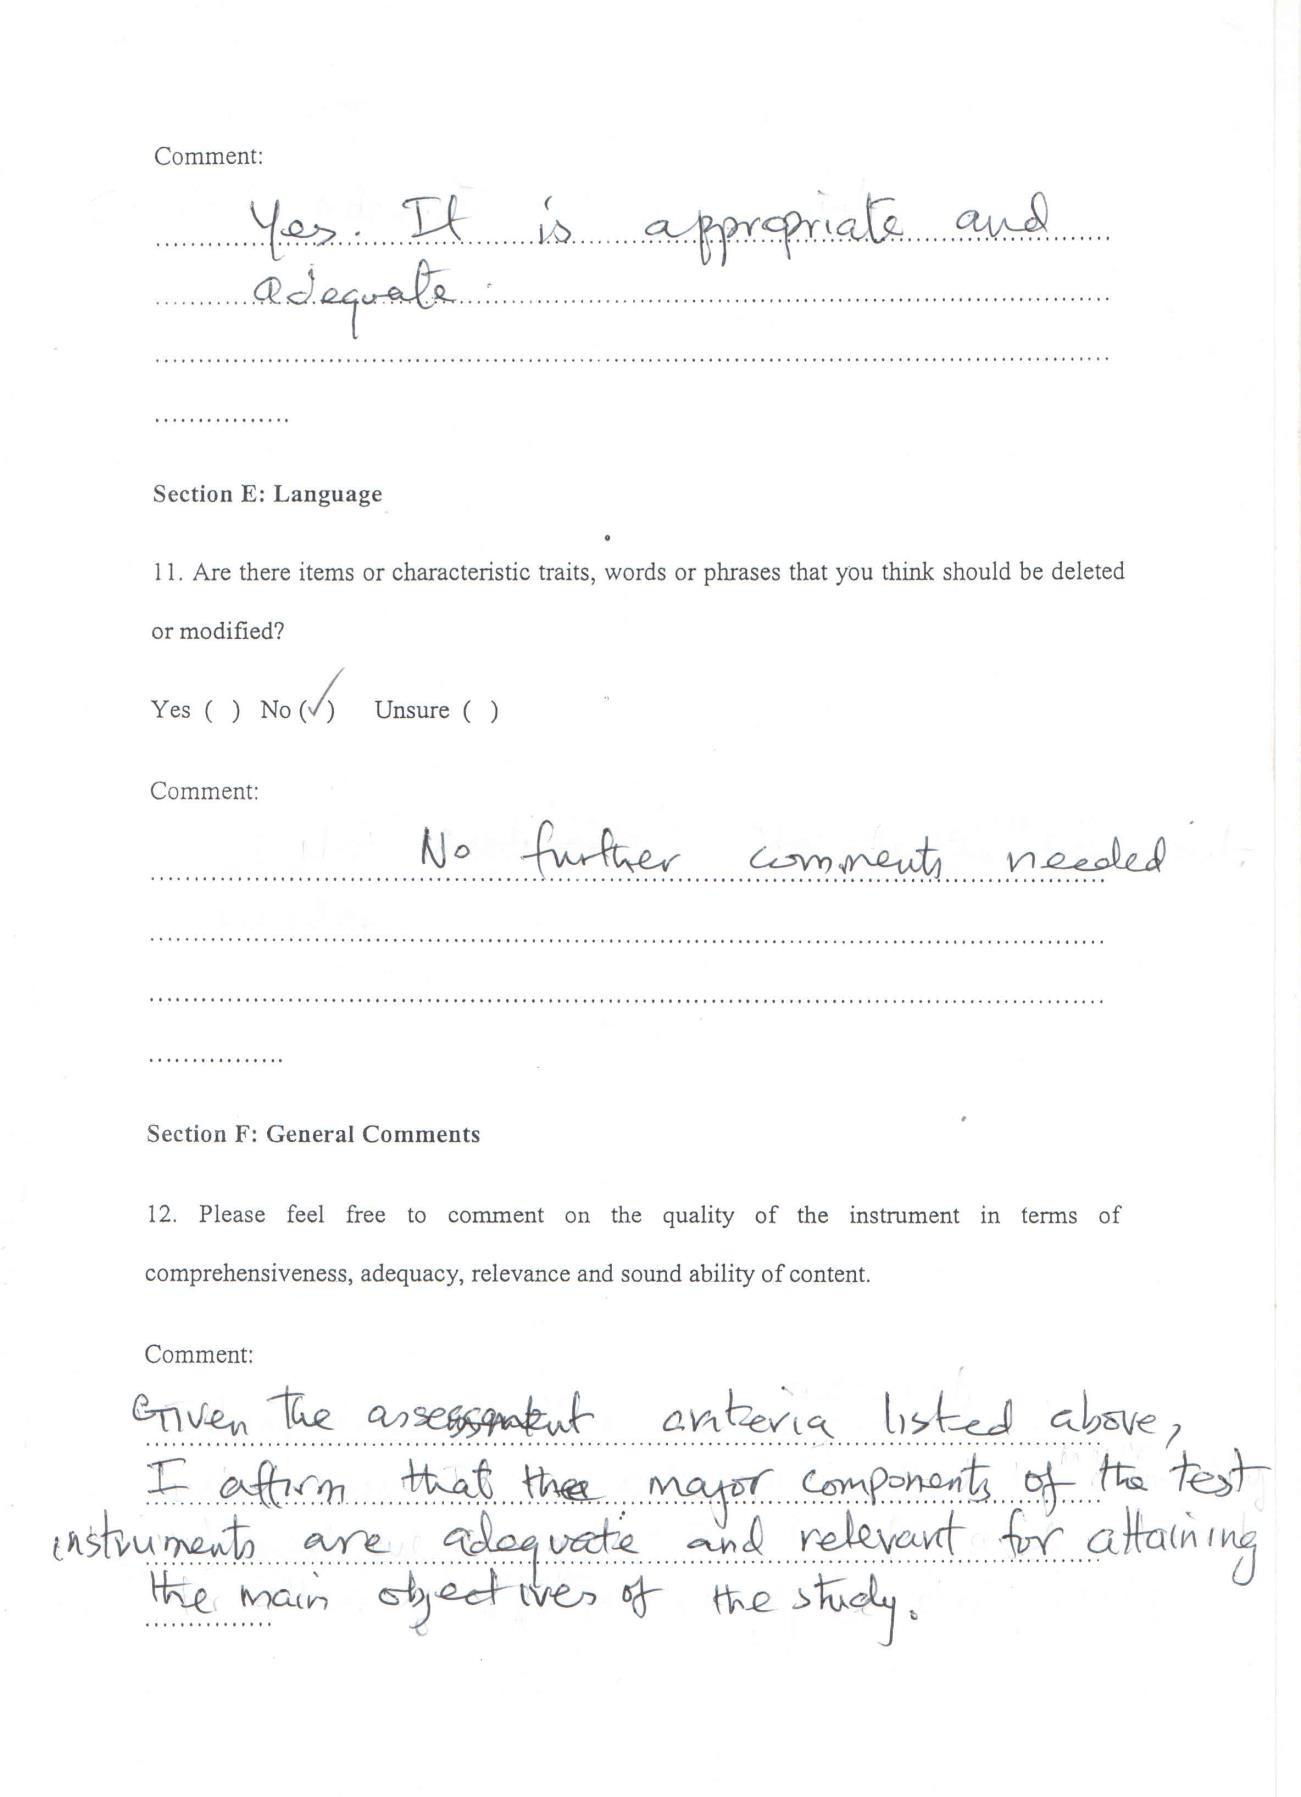 Comment:
Yes. It is appropriate and
adequate.
Section E: Language
11. Are there items or characteristic traits, words or phrases that you think should be deleted
or modified?
Yes ( ) No (✓) Unsure ( )
Comment:
No further comments needed
Section F: General Comments
12. Please feel free to comment on the quality of the instrument in terms of
comprehensiveness, adequacy, relevance and sound ability of content.
Comment:
Given the assessment criteria listed above,
I affirm that the major components of the test
instruments are adequate and relevant for attaining
the main objectives of the study.